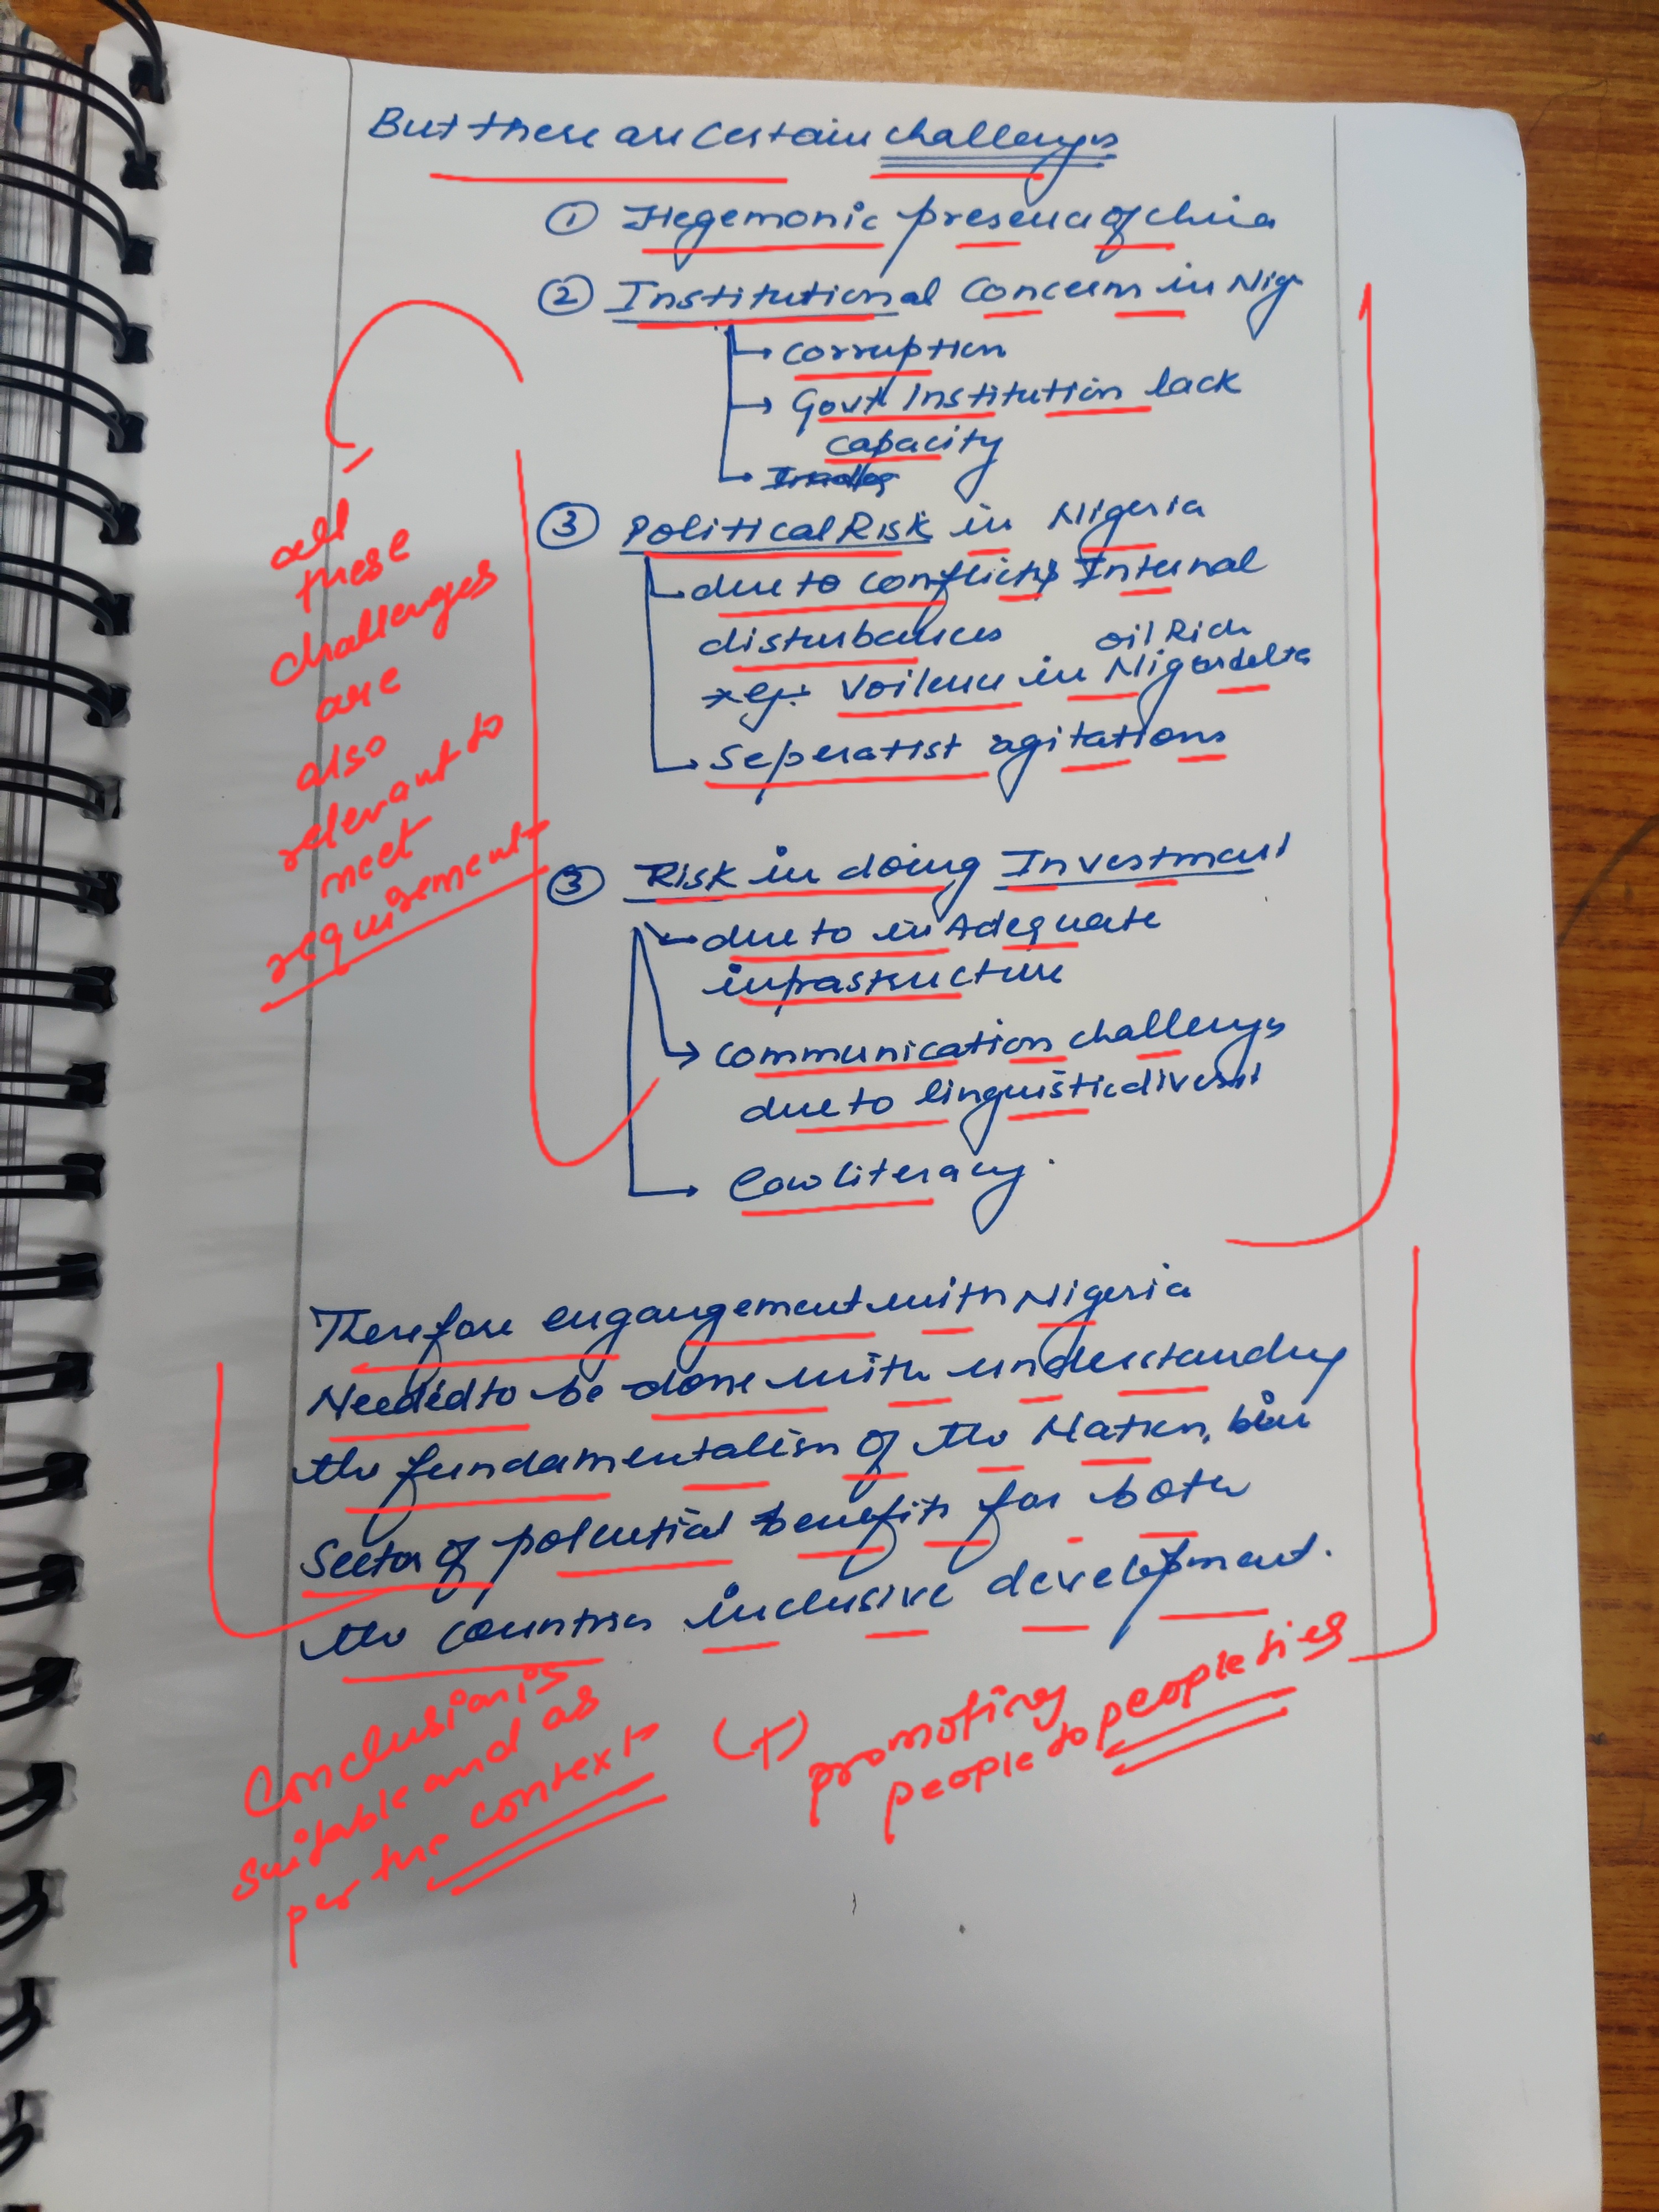 But there are certain challenges
① Hegemonic presence of china
② Institutional Concern in Nig.
→ corruption
→ Govt Institution lack
capacity
③ Political Risk in Nigeria
due to conflicts Internal
disturbances
oil Rich
eg: Voilence in Nigerdelta
→ Seperatist agitations
③ Risk in doing Investment
→ due to inAdequate
infrastructure
→ communication challenges
due to linguistic
→ Low literacy.
Therefore engangement with Nigeria
Needed to be done with understanding
the fundamentalism of the Nation,
Sector of potential benefits for both
the countries inclusive development.
all
these
challenges
are
also
relevant to
meet
requirement
Conclusion is
suitable and as
per the context
(+) promoting
people to people ties